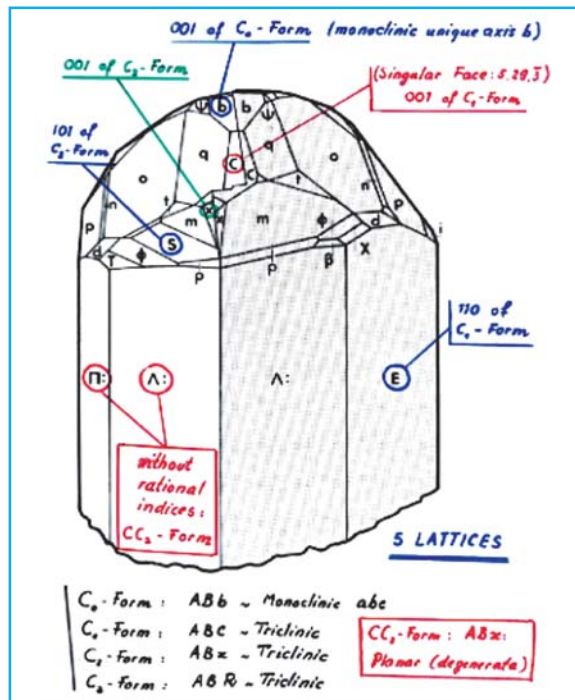 001 of C₀-Form (monoclinic unique axis b)
001 of C₂-Form
(Singular Face: 5.29.3̅)
001 of C₁-Form
101 of
C₃-Form
ψ b b ψ
q C q
o o
n t C t n
p x m m ϕ d p i
S
d T ϕ ρ ρ β χ
110 of
C₁-Form
Π: Λ: Λ: E
without
rational
indices:
CC₂-Form
5 LATTICES
C₀-Form: ABb ~ Monoclinic abc
C₁-Form: ABC ~ Triclinic
C₂-Form: ABx ~ Triclinic
C₃-Form: ABR ~ Triclinic
CC₂-Form: ABx:
Planar (degenerata)